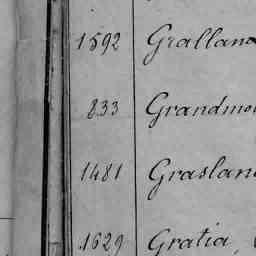 1592 Gralland
833 Grandmo
1481 Graslan
1629 Gratia,